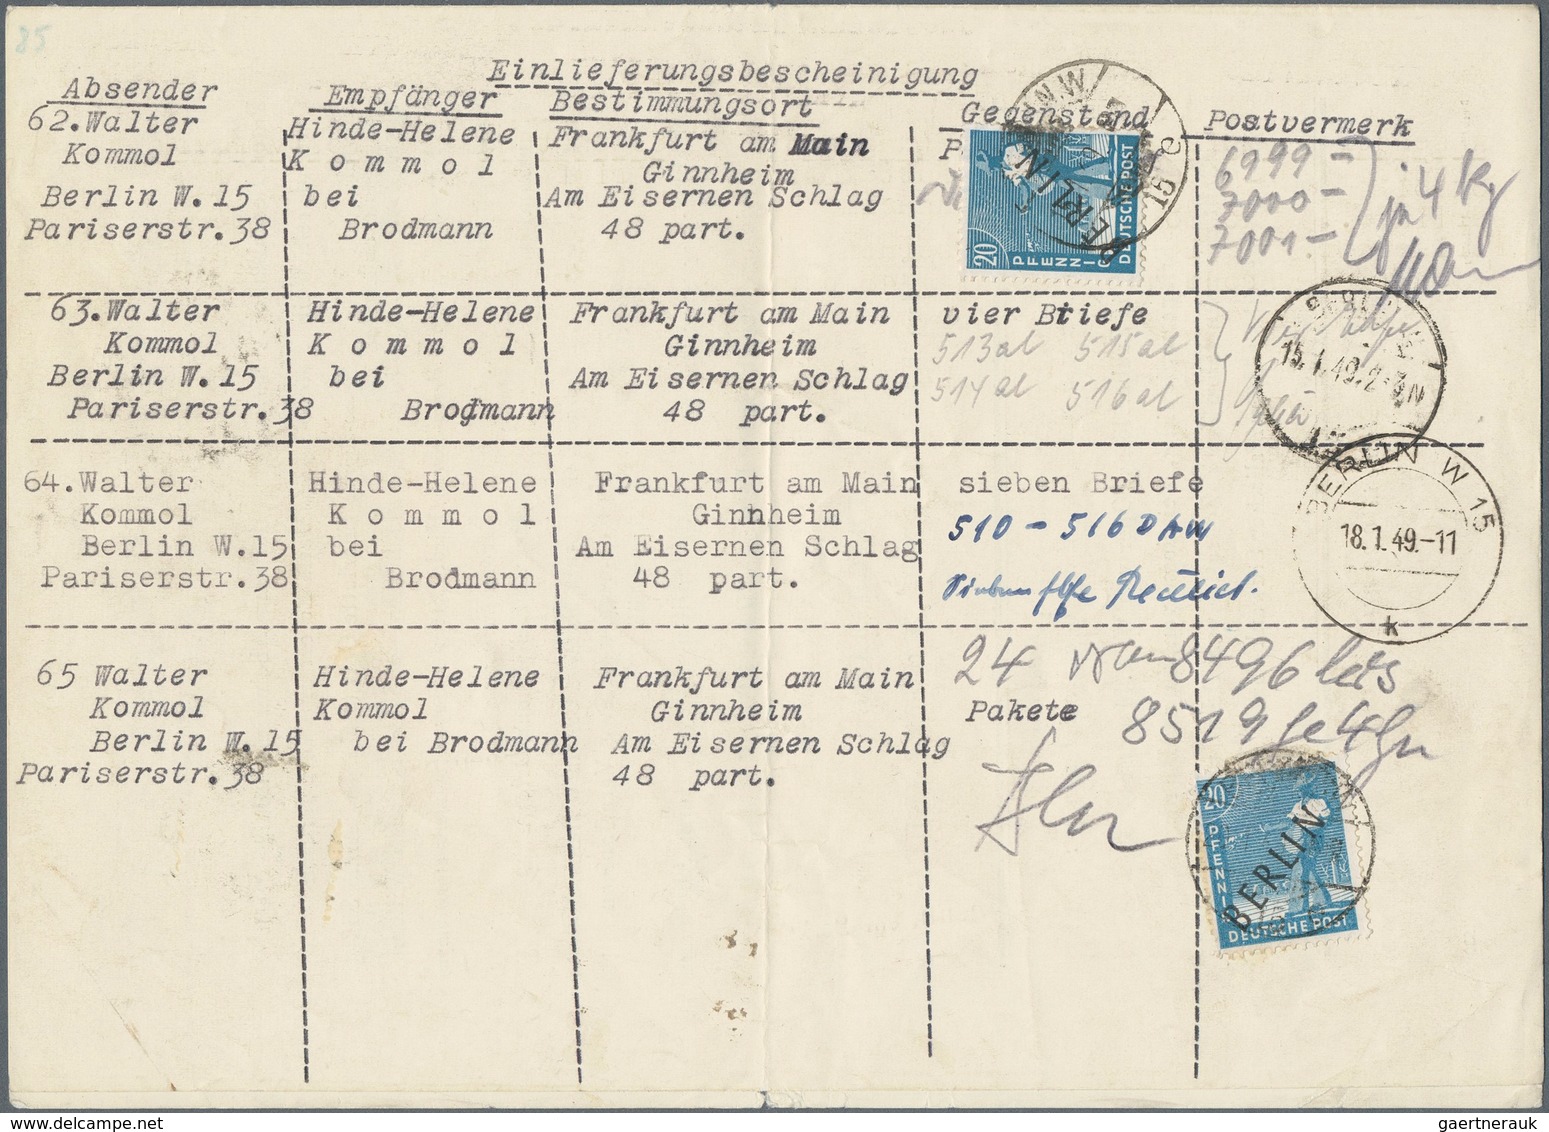 85
Einlieferungsbescheinigung
Absender Empfänger Bestimmungsort Gegenstand Postvermerk
62.Walter
Kommol
Berlin W.15
Pariserstr.38
Hinde-Helene
K o m m o l
bei
Brodmann
Frankfurt am Main
Ginnheim
Am Eisernen Schlag
48 part.
P
20
PFENNIG
DEUTSCHE POST
BERLIN
15 e
6999 -
7000 -
7001 -
je 4 kg
63.Walter
Kommol
Berlin W.15
Pariserstr.38
Hinde-Helene
K o m m o l
bei
Brodmann
Frankfurt am Main
Ginnheim
Am Eisernen Schlag
48 part.
vier Briefe
513 al 515 al
514 al 516 al
15.1.49.
64.Walter
Kommol
Berlin W.15
Pariserstr.38
Hinde-Helene
K o m m o l
bei
Brodmann
Frankfurt am Main
Ginnheim
Am Eisernen Schlag
48 part.
sieben Briefe
510 - 516
BERLIN W 15
18.1.49.-11
k
65 Walter
Kommol
Berlin W.15
Pariserstr.38
Hinde-Helene
Kommol
bei Brodmann
Frankfurt am Main
Ginnheim
Am Eisernen Schlag
48 part.
24
Pakete
8496 bis
8519
20
PFENN
BERLIN
DEUTSCHE POST
gaertnerauk